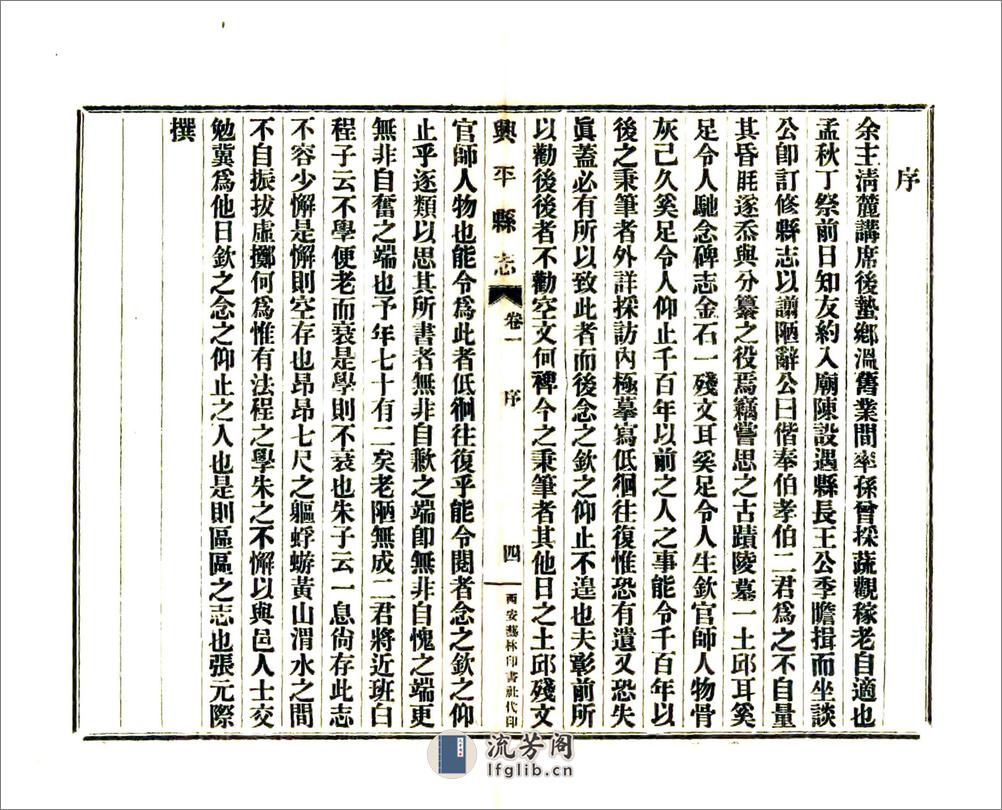 序
余主淸麓講席後蟄鄉溫舊業間率孫曾採蔬觀稼老自適也
孟秋丁祭前日知友約入廟陳設遇縣長王公季瞻揖而坐談
公卽訂修縣志以謭陋辭公曰偕奉伯孝伯二君爲之不自量
其昏眊遂忝與分纂之役焉竊嘗思之古蹟陵墓一土邱耳奚
足令人馳念碑志金石一殘文耳奚足令人生欽官師人物骨
灰已久奚足令人仰止千百年以前之人之事能令千百年以
後之秉筆者外詳採訪內極摹寫低徊往復惟恐有遺又恐失
眞蓋必有所以致此者而後念之欽之仰止不遑也夫彰前所
以勸後後者不勸空文何裨今之秉筆者其他日之土邱殘文
興平縣志 卷一 序 四 西安藝林印書社代印
官師人物也能令爲此者低徊往復乎能令閱者念之欽之仰
止乎逐類以思其所書者無非自歉之端卽無非自愧之端更
無非自奮之端也予年七十有二矣老陋無成二君將近班白
程子云不學便老而衰是學則不衰也朱子云一息尙存此志
不容少懈是懈則空存也昂昂七尺之軀蜉蝣黃山渭水之間
不自振拔虛擲何爲惟有法程之學朱之不懈以與邑人士交
勉冀爲他日欽之念之仰止之人也是則區區之志也張元際
撰
流芳阁
lfglib.cn